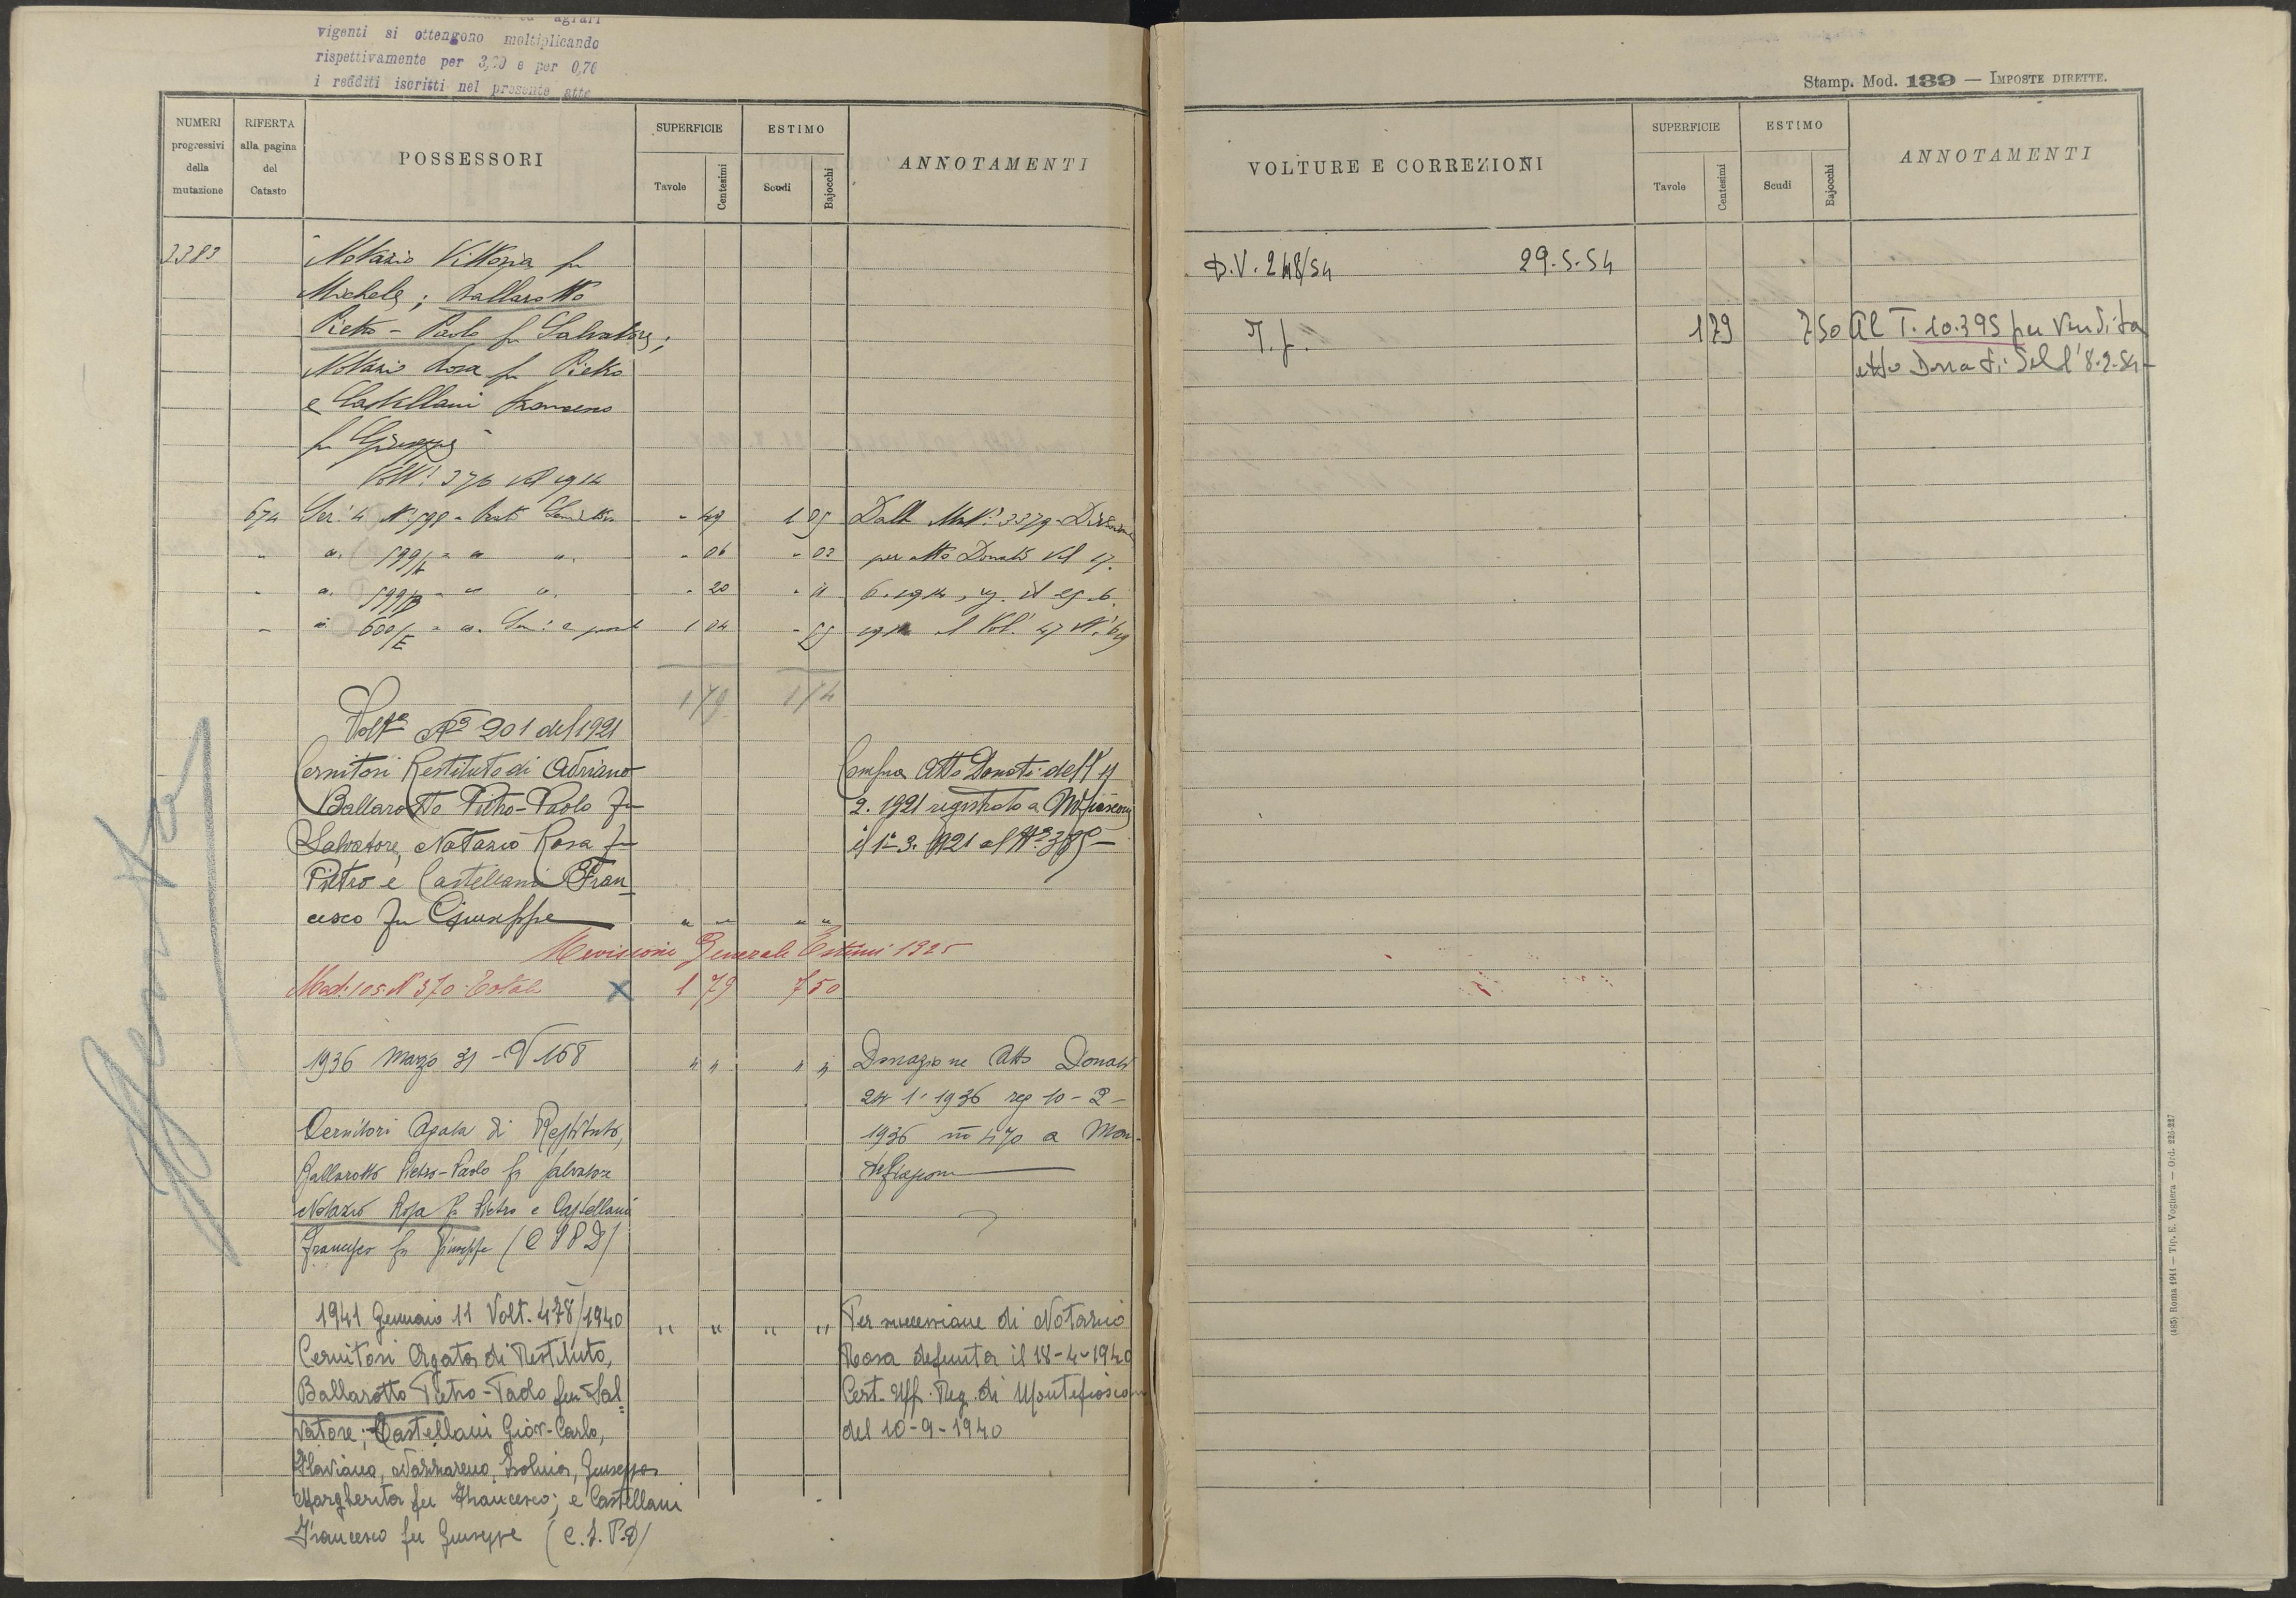 vigenti si ottengono moltiplicando
rispettivamente per 3,00 e per 0,76
i redditi iscritti nel presente atto
Stamp. Mod. 139 — IMPOSTE DIRETTE.
NUMERI progressivi della mutazione
RIFERTA alla pagina del Catasto
POSSESSORI
SUPERFICIE
Tavole
Centesimi
ESTIMO
Scudi
Bajocchi
ANNOTAMENTI
VOLTURE E CORREZIONI
SUPERFICIE
Tavole
Centesimi
ESTIMO
Scudi
Bajocchi
ANNOTAMENTI
3383 Notazio Vittoria fu
Michele; Ballarotto
Pietro - Paolo fu Salvatore;
Notazio Rosa fu Pietro
e Castellani Francesco
fu Giuseppe
Volt. 376 del 1914
674 Sez. 4 N. 598 - 49 1 05 Dalla 3379 - Divisione
" 599/ - 06 - 03 per atto Donati del 17.
" 599/B - 20 - 11 6. 1914,
" 600/E 1 04 - 55 Vol. 47 N. 619
1 79 1 74
Volt.ª N.º 201 del 1921
Cernitori Restituto di Adriano
Ballarotto Pietro-Paolo fu
Salvatore, Notazio Rosa fu
Pietro e Castellani Fran
cesco fu Giuseppe " " " "
Compra Atto Donati dell'11
2. 1921 registrato a Mtefiascone
il 1º 3. 1921 al Nº 385
Revisione Generale Estimi 1925
Mod. 105. N 370 Totale X 1 79 7 50
1936 Marzo 31 - V 168 " " " " Donazione Atto Donati
24 1. 1936 reg 10 - 2 -
1936 nº 470 a Mon-
tefiascone
Cernitori Agata di Restituto,
Ballarotto Pietro-Paolo fu Salvatore
Notazio Rosa fu Pietro e Castellani
Francesco fu Giuseppe (C 98 D)
1941 Gennaio 11 Volt. 478/1940 " " " " Per successione di Notazio
Cernitori Agata di Restituto, Rosa defunta il 18-4-1940
Ballarotto Pietro-Paolo fu Sal= Cert. Uff. Reg. di Montefiascone
vatore; Castellani Giov-Carlo, del 10-9-1940
Flaviano, Nazzareno, Isolina, Giuseppa
Margherita fu Francesco; e Castellani
Francesco fu Giuseppe (C. S. P. D)
D.V. 248/54 29.5.54
T.f. 1 79 7 50 Al T. 10.395 per Vendita
atto Donati dell'8.2.54
(485) Roma 1911 — Tip. E. Voghera — Ord. 226-227